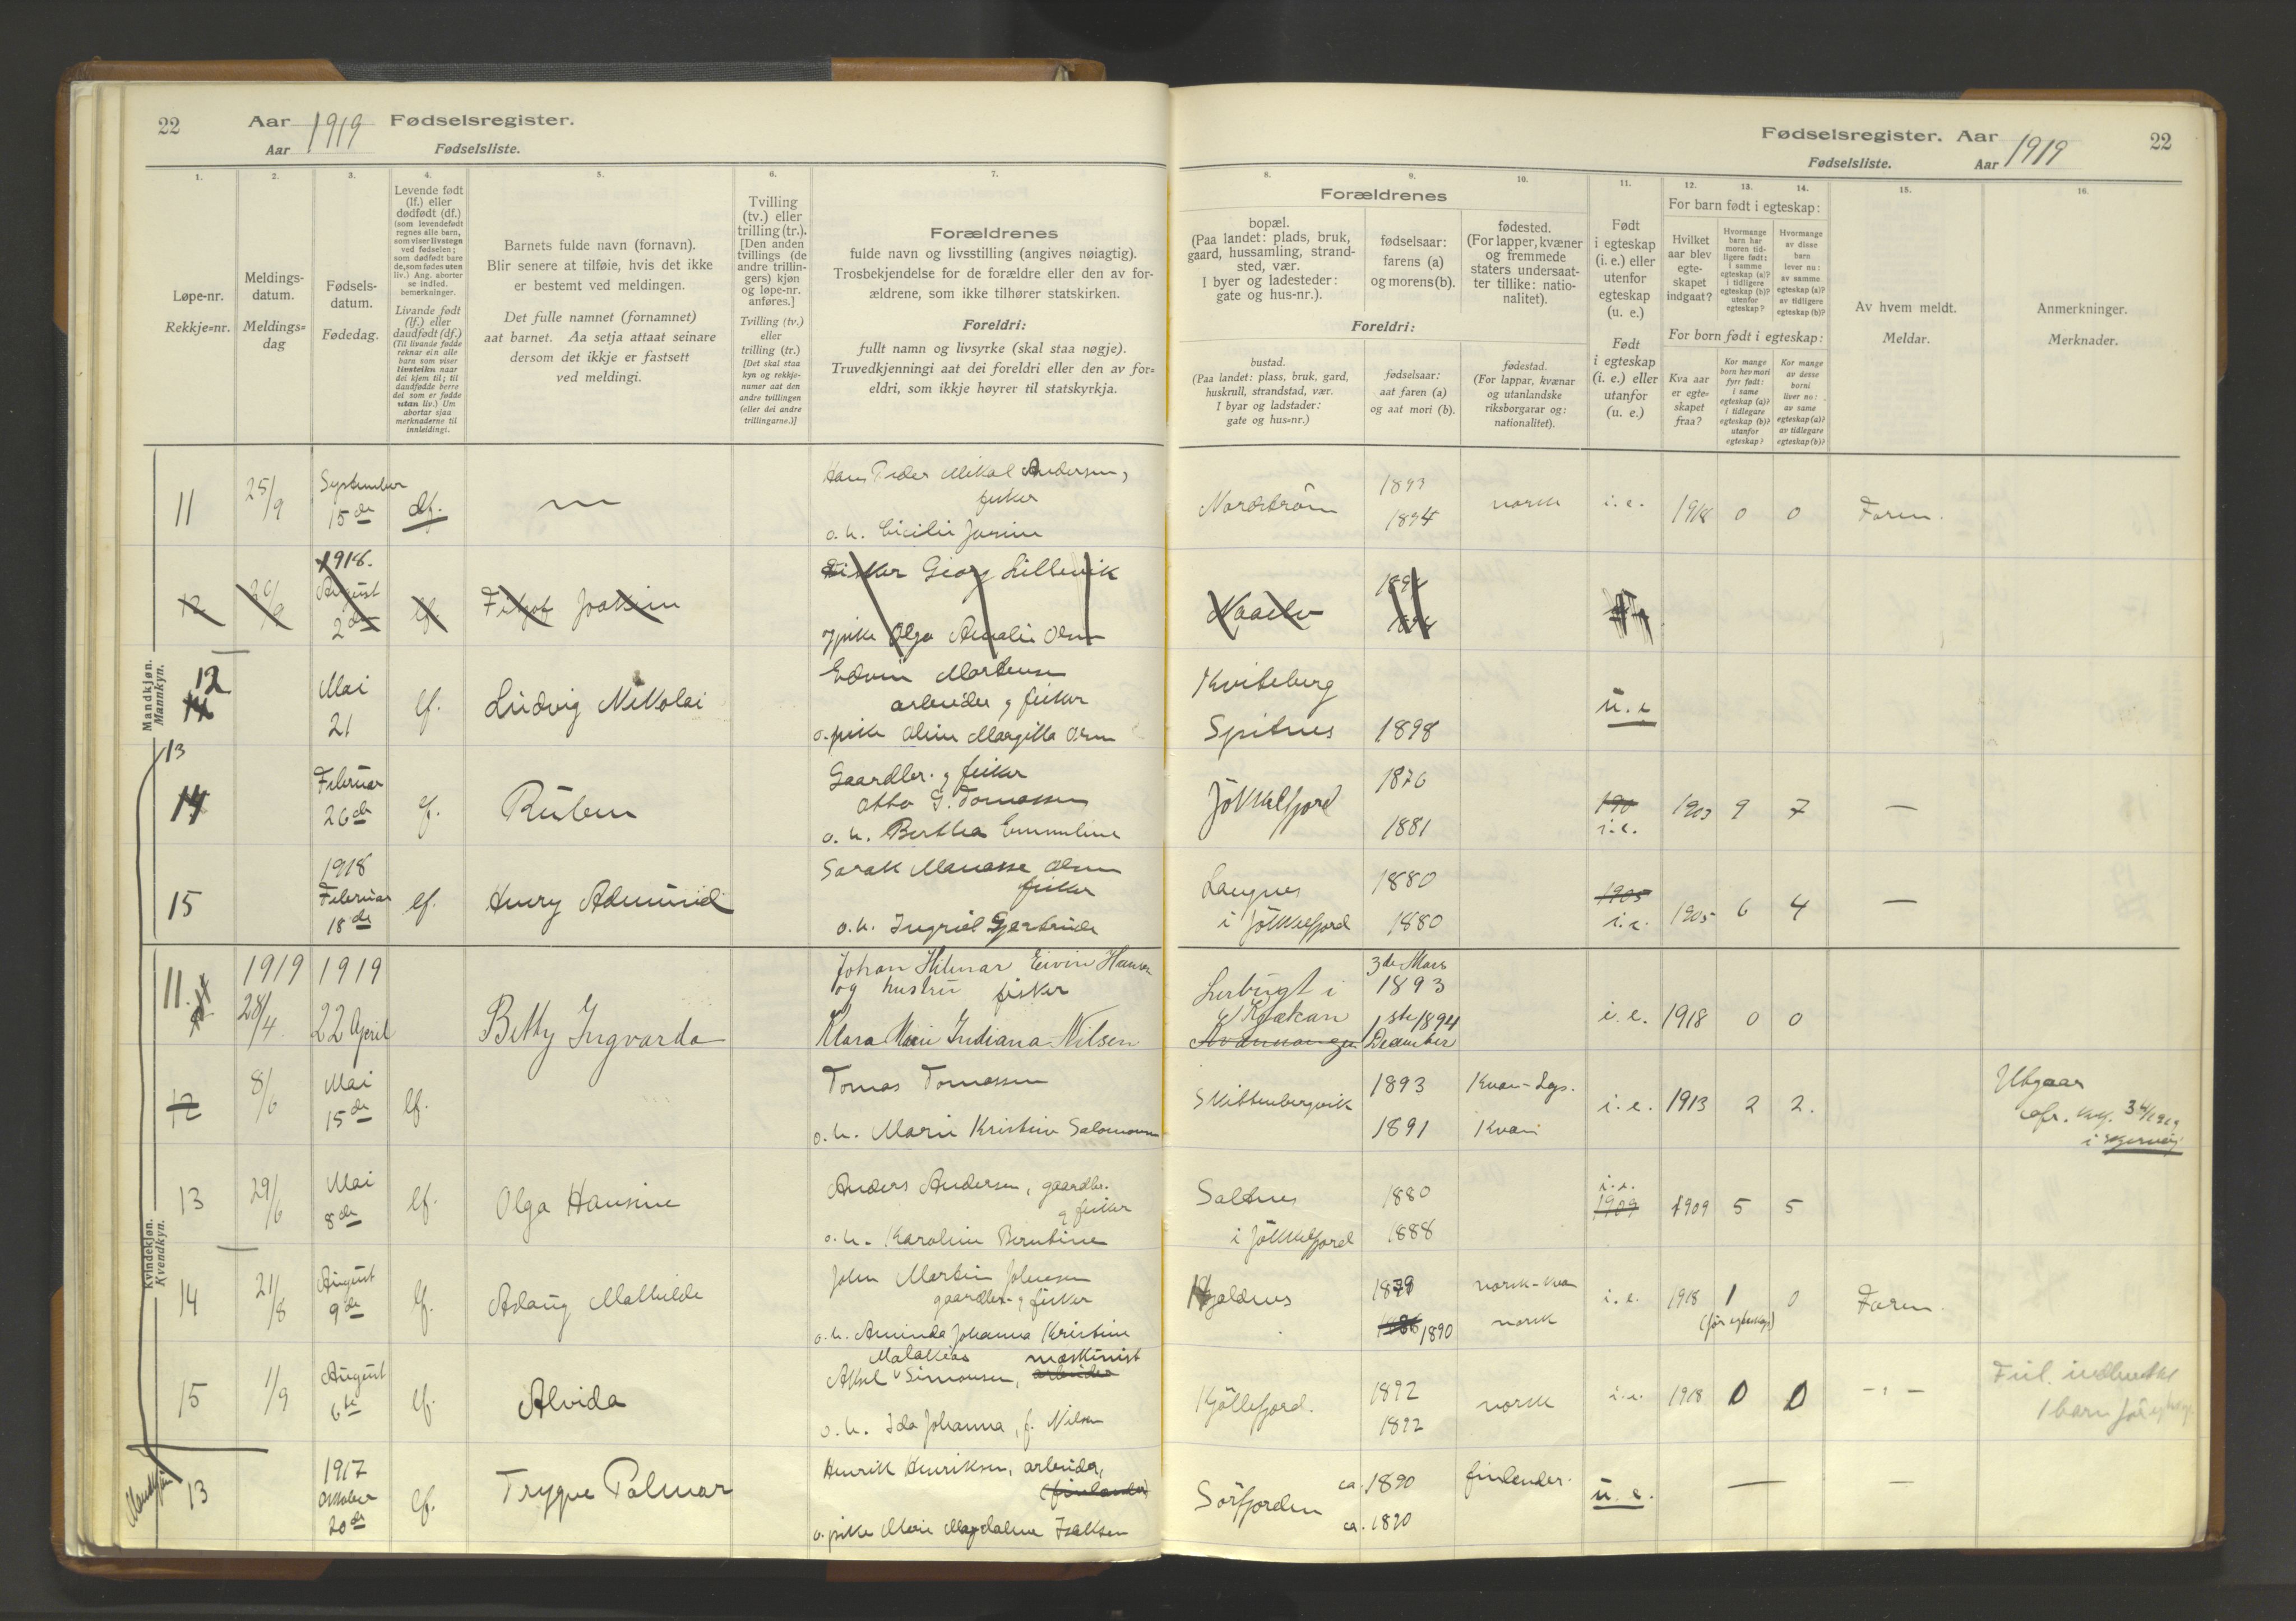 22
Aar 1919 Fødselsregister.
Aar Fødselsliste.
Fødselsregister. Aar 1919
Fødselsliste. Aar
22
1.
Løpe-nr.
Rekkje=nr.
2.
Meldings-
datum.
Meldings=
dag
3.
Fødsels-
datum.
Fødedag.
4.
Levende født
(lf.) eller
dødfødt (df.)
(som levendefødt
regnes alle barn,
som viser livstegn
ved fødselen;
som dødfødt bare
de, som fødes uten
liv.) Ang. aborter
se indled.
bemerkninger.
Livande født
(lf.) eller
daudfødt (df.)
(Til livande fødde
reknar ein alle
barn som viser
livsteikn naar
dei kjem til; til
daudfødde berre
dei som er fødde
utan liv.) Um
abortar sjaa
merknaderne til
innleidingi.
5.
Barnets fulde navn (fornavn).
Blir senere at tilføie, hvis det ikke
er bestemt ved meldingen.
Det fulle namnet (fornamnet)
aat barnet. Aa setja attaat seinare
dersom det ikkje er fastsett
ved meldingi.
6.
Tvilling
(tv.) eller
trilling (tr.).
[Den anden
tvillings (de
andre trillin-
gers) kjøn
og løpe-nr.
anføres.]
Tvilling (tv.)
eller
trilling (tr.)
[Det skal staa
kyn og rekkje-
numer aat den
andre tvillingen
(eller dei andre
trillingarne.)]
7.
Forældrenes
fulde navn og livsstilling (angives nøiagtig).
Trosbekjendelse for de forældre eller den av for-
ældrene, som ikke tilhører statskirken.
Foreldri:
fullt namn og livsyrke (skal staa nøgje).
Truvedkjenningi aat dei foreldri eller den av for=
eldri, som ikkje høyrer til statskyrkja.
8.
Forældrenes
bopæl.
(Paa landet: plads, bruk,
gaard, hussamling, strand-
sted, vær.
I byer og ladesteder:
gate og hus-nr.).
Foreldri:
bustad.
(Paa landet: plass, bruk, gard,
huskrull, strandstad, vær.
I byar og ladstader:
gate og hus=nr.)
9.
fødselsaar:
farens (a)
og morens (b).
fødselsaar:
aat faren (a)
og aat mori (b).
10.
fødested.
(For lapper, kvæner
og fremmede
staters undersaat-
ter tillike: natio-
nalitet).
fødestad.
(For lappar, kvænar
og utanlandske
riksborgarar og:
nationalitet).
11.
Født
i egteskap
(i. e.) eller
utenfor
egteskap
(u. e.)
Født
i egteskap
(i. e.) eller
utanfor
(u. e.)
12. 13. 14.
For barn født i egteskap:
Hvilket
aar blev
egte-
skapet
indgaat?
Hvormange
barn har
moren tid-
ligere født:
i samme
egteskap (a)?
i tidligere
egteskap (b)?
utenfor
egteskap?
Hvormange
av disse
barn
lever nu:
av samme
egteskap (a)?
av tidligere
egteskap (b)?
For born født i egteskap:
Kva aar
er egte-
skapet
fraa?
Kor mange
born hev mori
fyrr født:
i same
egteskap (a)?
i tidlegare
egteskap (b)?
utanfor
egteskap?
Kor mange
av desse
borni
liver no:
av same
egteskap (a)?
av tidlegare
egteskap (b)?
15.
Av hvem meldt.
Meldar.
16.
Anmerkninger.
Merknader.
Mandkjøn.
Mannkyn.
11 25/9 September 15de df. Hans Peder Mikal Andersen,
fisker
o. h. Cicilie Josine
Nordstrøm 1893 1894 norsk i. e. 1918 0 0 Faren.
12 26/9 1918. August 2de lf. Joakim
fisker Georg Lillevik
og pike Olga Amalie Olsen
1894
12 Mai 21 lf. Ludvig Nikolai
Edvin Mortensen
arbeider og fisker
o. pike Oline Margitta Olsen
Kviteberg
Spitnes 1898 u. e
13
14 Februar 26de lf. Ruben
Gaardbr. og fisker
Otto G. Tomassen
o. h. Berthea Emmeline
Jökkelfjord 1876 1881 190 i. e. 1903 9 7 —
15 1918 Februar 18de lf. Henry Admund
Sarak Manasse Olsen
fisker
o. h. Ingrid Gjertrude
Langnes
i Jökkelfjord 1880 1880 1905 i. e. 1905 6 4 —
Kvindekjøn.
Kvendkyn.
11. 1919 28/4. 1919 22 April Betty Ingvarda
Johan Hilmar Eivin Hansen
og hustru fisker
Klara Marie Indiana Nilsen
Lerbugt i
Kvænangen
3de Mars 1893
1ste 1894 December
i. e. 1918 0 0
12 8/6 Mai 15de lf.
Tomas Tomassen
o. h. Marie Kristine Salomonsen
Skittenbergvik 1893 1891 Kvæn i. e. 1913 2 2.
Utgaar
13 29/6 Mai 8de lf. Olga Hansine
Anders Andersen, gaardbr.
og fisker
o. h. Karoline Berntine
Saltnes
i Jökkelfjord 1880 1888 i. e. 1909 1909 5 5
14 21/8 August 9de lf. Aslaug Mathilde
John Martin Johnsen
gaardbr. og fisker
o. h. Aminda Johanna Kristine
1879 1886 1890 norsk-kvæn norsk i. e. 1918 1 0 Faren.
(før egteskap)
15 1/9 August 6te lf. Alvida
Malakias maskinist
Aksel Simonsen, arbeider
o. h. Ida Johanna, f. Nilsen
Kjöllefjord. 1892 1892 norsk i. e. 1918 0 0 - " -
1 barn før egteskap
Mandkjøn
13 1917 Oktober 20de lf. Trygve Palmar
Henrik Henriksen, arbeider,
(finlender)
o. pike Marie Magdalene Isaksen
Sörfjorden ca. 1890 ca. 1890 finlender. u. e. — —